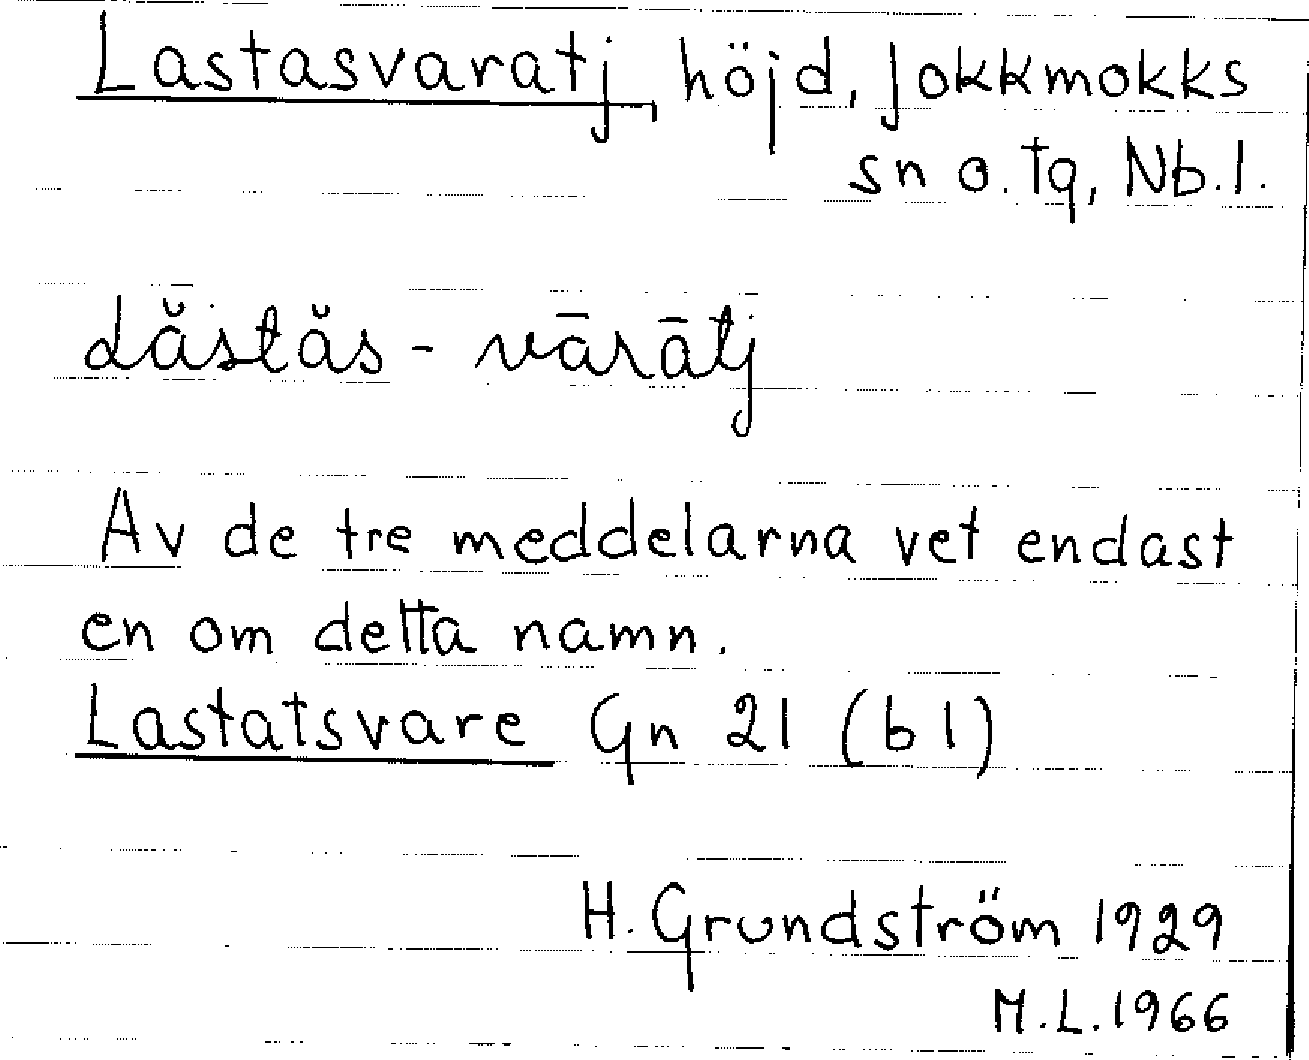 Lastasvaratj, höjd, Jokkmokks
sn o. tg, Nb.l.
Lăstăs - vārātj
Av de tre meddelarna vet endast
en om detta namn.
Lastatsvare Gn 21 (b1)
H. Grundström 1929
M.L. 1966